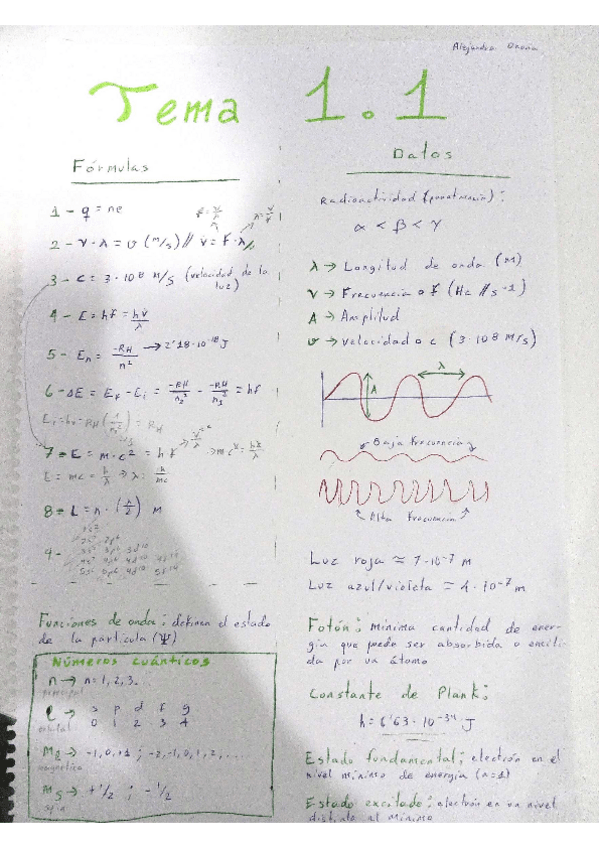 Alejandro
Tema 1.1
Fórmulas
1 - q = ne
2 - ν · λ = v (m/s) // v = f · λ
3 - c = 3 · 10 8 m/s (velocidad de la
luz)
4 - E = hf = hv/λ
5 - En = -RH/n² → 2'18 · 10⁻¹⁸ J
6 - ΔE = Ef - Ei = -RH/n₂² - -RH/n₁² = hf
7 - E = m · c² = h f ⇒ mc² = hv/λ
E = mc = h/λ ⇒ λ = h/mc
8 - L = n · (λ/2) m
9 -
Funciones de onda: definen el estado
de la partícula (Ψ)
Números cuánticos
n → n = 1, 2, 3...
principal
l → s p d f g
0 1 2 3 4
mℓ → -1, 0, +1 ; -2, -1, 0, 1, 2, ...
magnética
ms → +1/2 ; -1/2
Datos
Radioactividad
α < β < γ
λ → Longitud de onda (m)
ν → Frecuencia o f (Hz // s⁻¹)
A → Amplitud
v → velocidad o c (3 · 10 8 m/s)
λ
A
Baja frecuencia
Alta frecuencia
Luz roja ≈ 7 · 10⁻⁷ m
Luz azul/violeta ≈ 4 · 10⁻⁷ m
Fotón: mínima cantidad de ener-
gía que puede ser absorbida o emiti-
da por un átomo
Constante de Plank:
h = 6'63 · 10⁻³⁴ J
Estado fundamental: electrón en el
nivel mínimo de energía (n=1)
Estado excitado: electrón en un nivel
distinto al mínimo